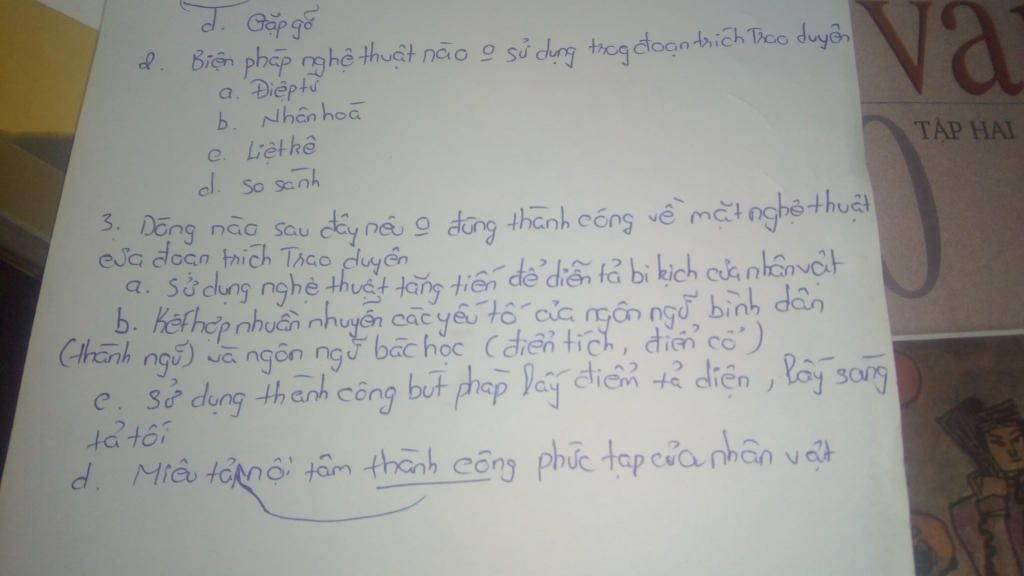 d. Gặp gỡ
2. Biện pháp nghệ thuật nào o sử dụng trog đoạn trích Trao duyên
a. Điệp từ
b. Nhân hoá
c. Liệt kê
d. so sánh
3. Dòng nào sau đây nêu o đúng thành công về mặt nghệ thuật
của đoạn trích Trao duyên
a. sử dụng nghệ thuật tăng tiến để diễn tả bi kịch của nhân vật
b. Kết hợp nhuần nhuyễn các yếu tố của ngôn ngữ bình dân
(thành ngữ) và ngôn ngữ bác học (điển tích, điển cố)
c. sử dụng thành công bút pháp lấy điểm tả diện, lấy sáng
tả tối
d. Miêu tả nội tâm thành công phức tạp của nhân vật
va
TẬP HAI